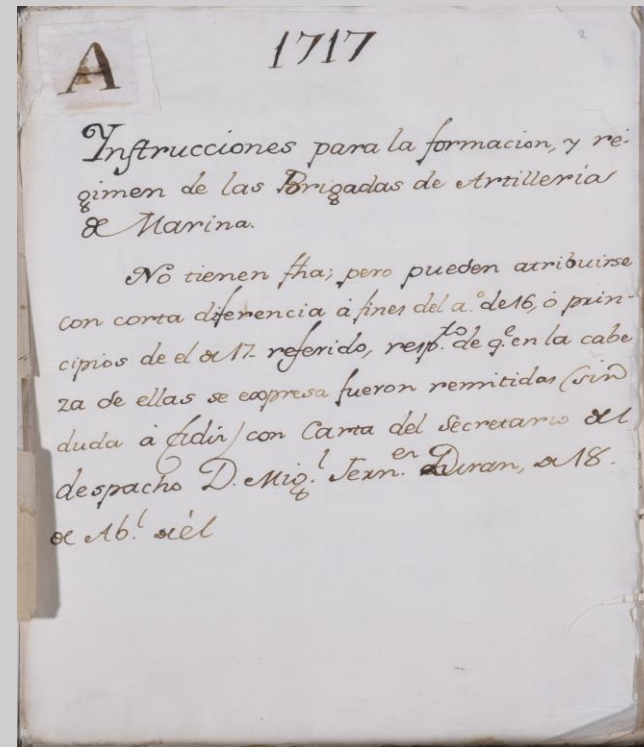 A
1717
2
Instrucciones para la formacion, y re-
gimen de las Brigadas de Artilleria
de Marina.
No tienen fha; pero pueden atribuirse
con corta diferencia à fines del a.º de 16, ò prin-
cipios de el de 17 referido, resp.to de q.e en la cabe
za de ellas se expresa fueron remitidas (sin
duda à Cadiz) con Carta del Secretario del
despacho D. Mig.l Fern.en Duran, de 18.
de Ab.l de èl